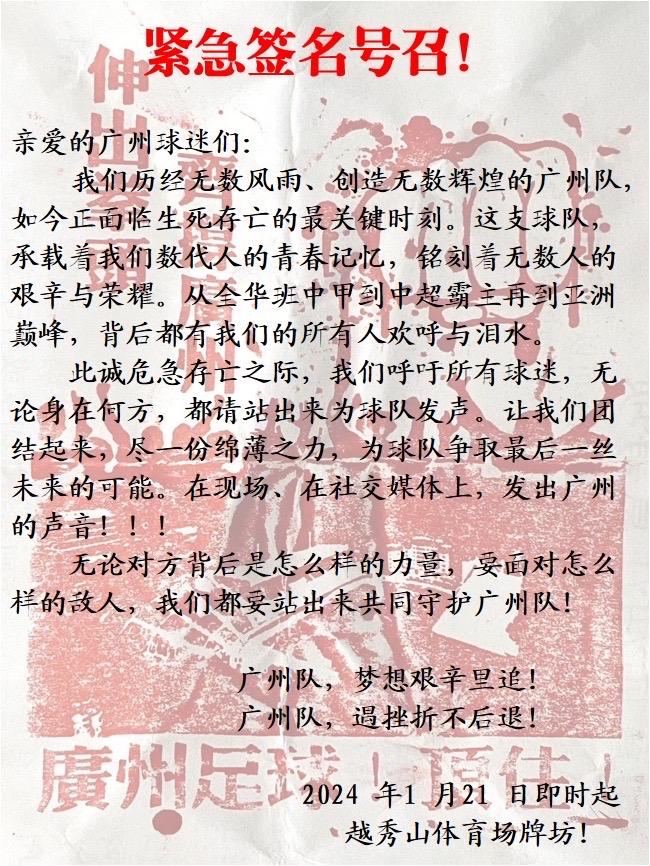 紧急签名号召！
亲爱的广州球迷们：
我们历经无数风雨、创造无数辉煌的广州队，
如今正面临生死存亡的最关键时刻。这支球队，
承载着我们数代人的青春记忆，铭刻着无数人的
艰辛与荣耀。从全华班中甲到中超霸主再到亚洲
巅峰，背后都有我们的所有人欢呼与泪水。
此诚危急存亡之际，我们呼吁所有球迷，无
论身在何方，都请站出来为球队发声。让我们团
结起来，尽一份绵薄之力，为球队争取最后一丝
未来的可能。在现场、在社交媒体上，发出广州
的声音！！！
无论对方背后是怎么样的力量，要面对怎么
样的敌人，我们都要站出来共同守护广州队！
广州队，梦想艰辛里追！
广州队，遏挫折不后退！
2024 年1 月21 日即时起
越秀山体育场牌坊！
伸出去
齊撐廣州
廣州足球！頂住！